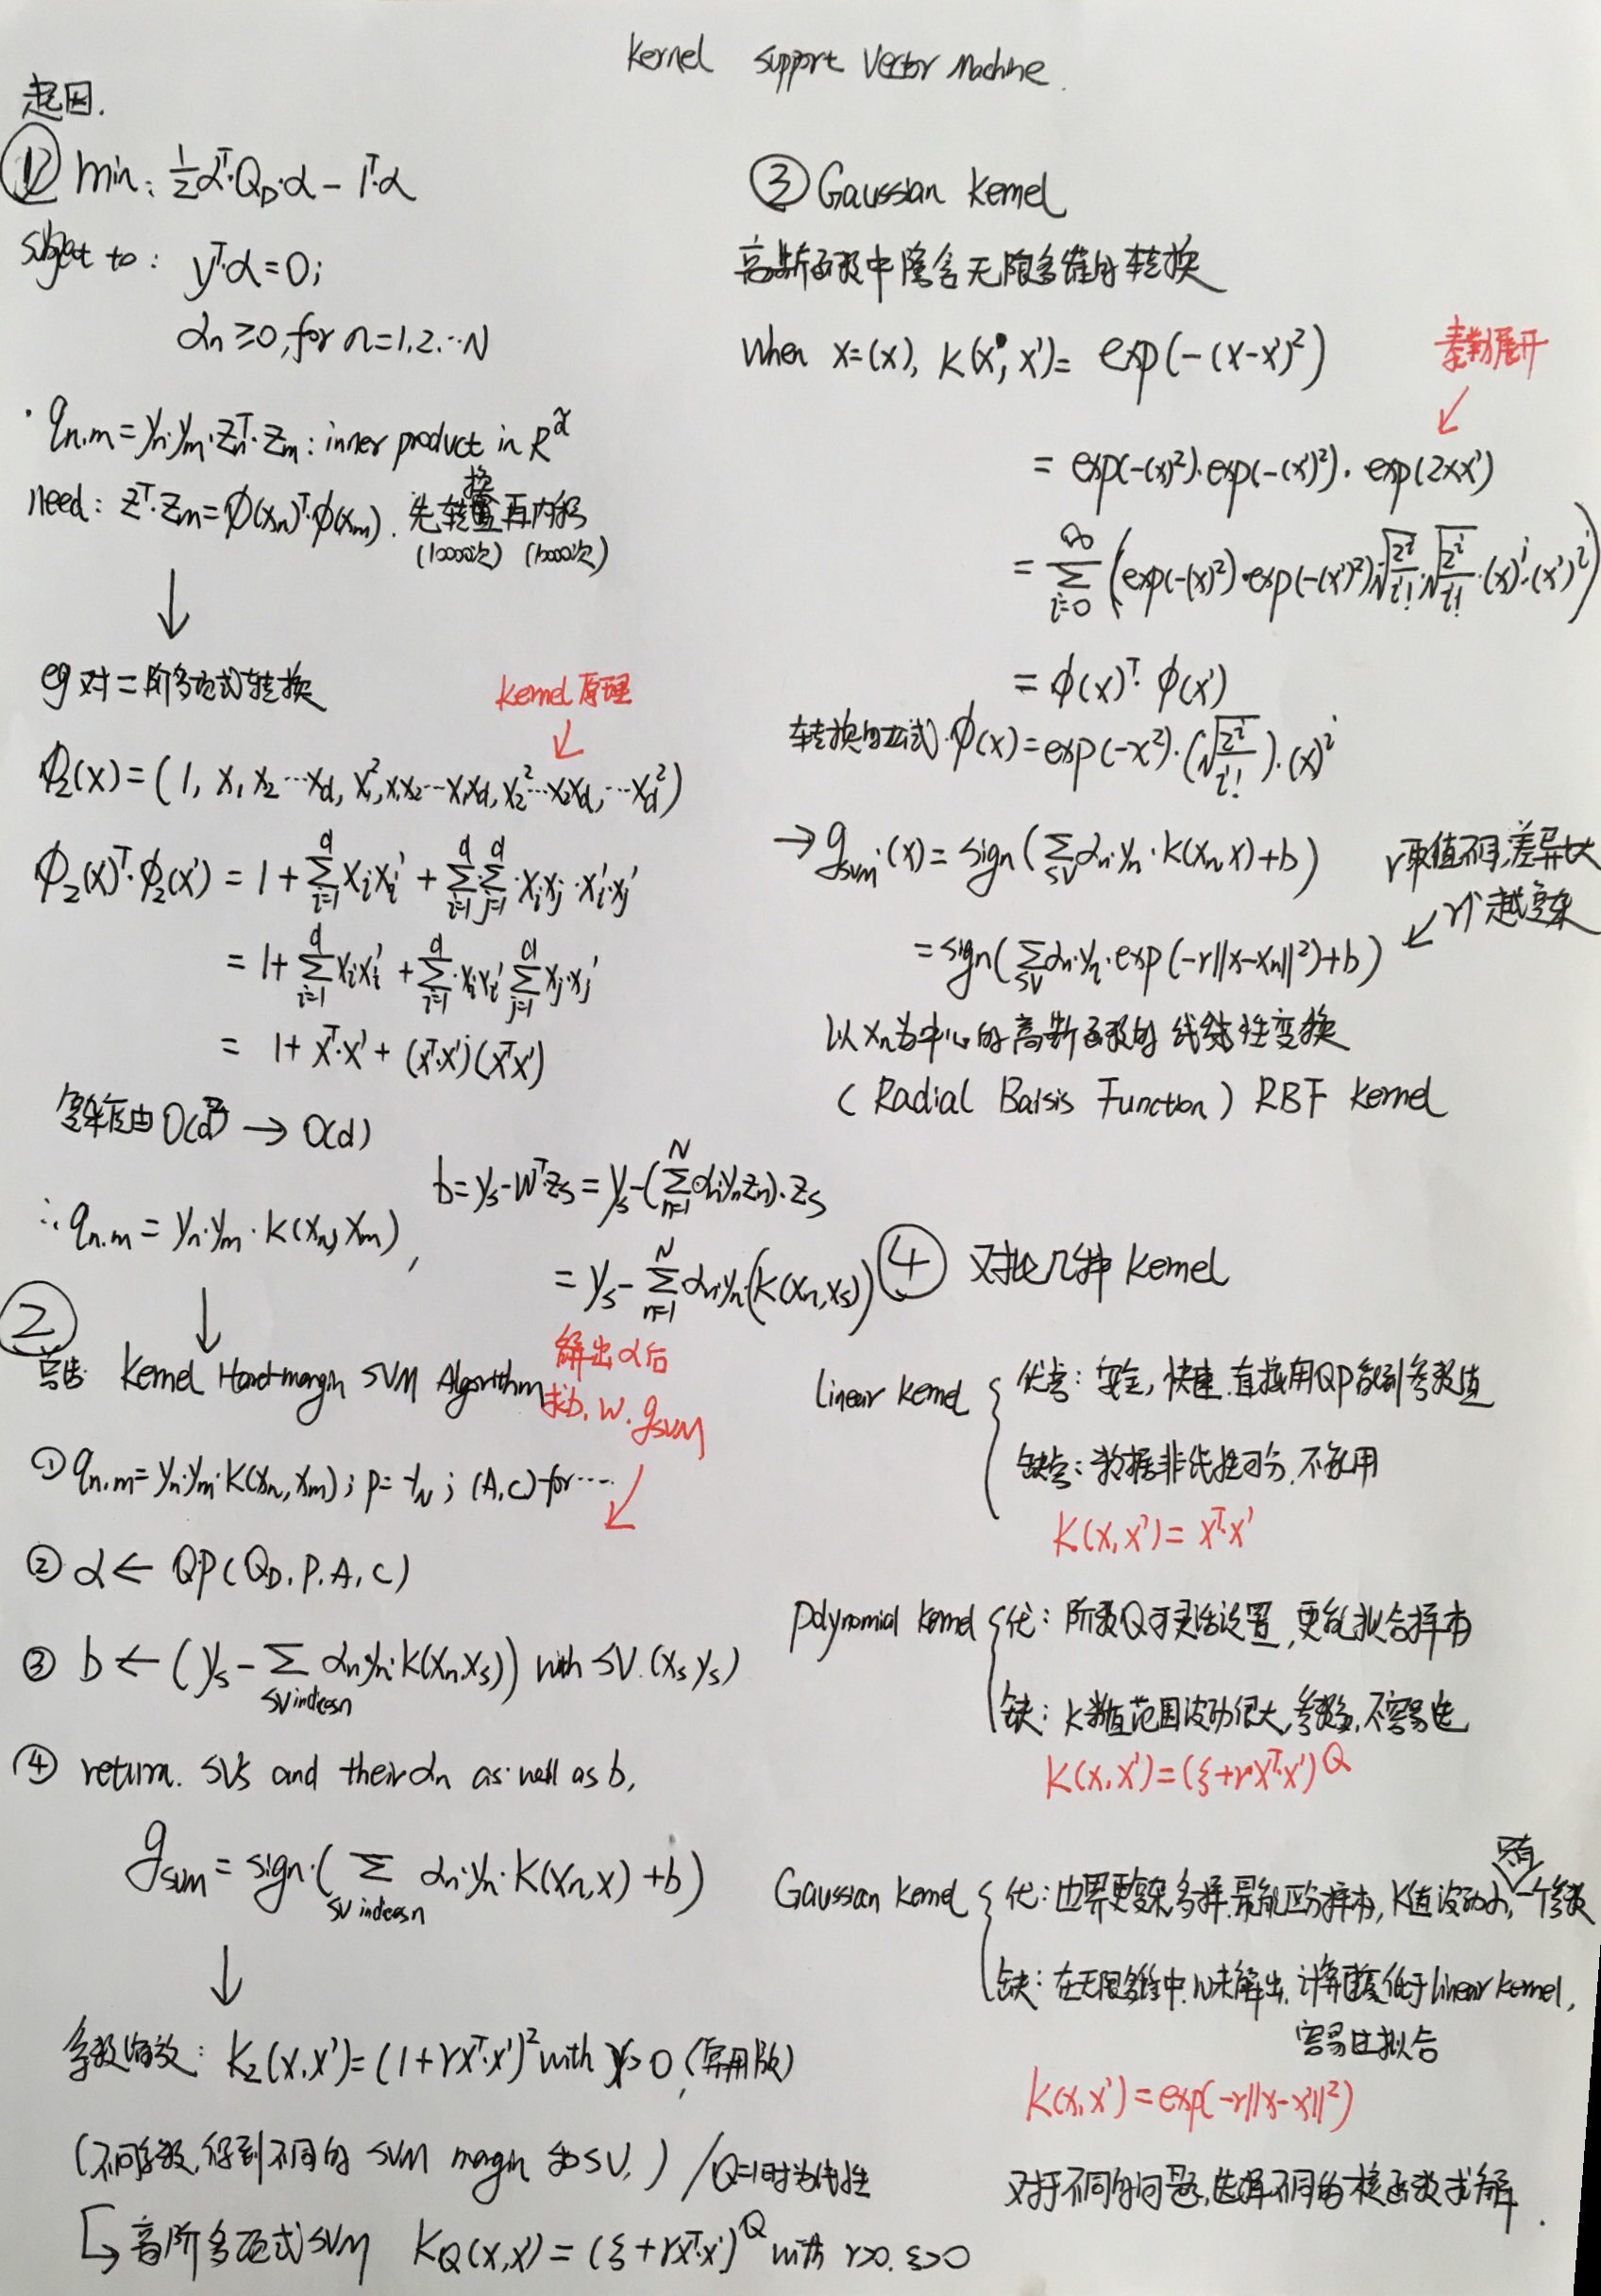 Kernel support Vector Machine.
起因.
① min: ½αᵀ·Q_D·α - 1ᵀ·α
subject to: yᵀ·α=0;
αn ≥0, for n=1,2…N
· qn,m = yn·ym·znᵀ·zm : inner product in R^d̃
need: zᵀ·zm = φ(xn)ᵀ·φ(xm). 先转换再内积
(10000次) (10000次)
↓
eg 对二阶多项式转换
kernel 原理
Φ₂(x) = (1, x₁ x₂ … xd, x₁², x₁x₂ … x₁xd, x₂² … x₂xd, … xd²)
φ₂(x)ᵀ·φ₂(x') = 1 + Σ_{i=1}^{d} xi xi' + Σ_{i=1}^{d} Σ_{j=1}^{d} xi·xj·xi'·xj'
= 1 + Σ_{i=1}^{d} xi·xi' + Σ_{i=1}^{d} xi·xi' Σ_{j=1}^{d} xj·xj'
= 1 + xᵀ·x' + (xᵀ·x')(xᵀx')
复杂度由 O(d²) → O(d)
∴ qn,m = yn·ym·K(xn, xm),
b = ys - wᵀzs = ys - (Σ_{n=1}^{N} αn yn zn)·zs
= ys - Σ_{n=1}^{N} αn·yn·(K(xn, xs))
↓
② Kernel Hard-margin SVM Algorithm
解出α后
求b, w, gSVM
① qn,m = yn·ym·K(xn, xm); p = -1N; (A, c) for …
② α ← QP(Q_D, P, A, C)
③ b ← (ys - Σ_{SV indices n} αn·yn·K(xn, xs)) with SV (xs ys)
④ return. SVs and their αn as well as b,
gsvm = sign·( Σ_{SV indices n} αn·yn·K(xn, x) + b)
↓
系数缩放: K₂(x, x') = (1 + rxᵀ·x')² with γ>0, (常用版)
(不同系数,得到不同的 SVM margin 和 SV,) / Q=1时为线性
↳ 高阶多项式SVM KQ(x, x') = (ξ + rxᵀ·x')^Q with r>0. ξ>0
③ Gaussian Kernel
高斯函数中隐含无限多维的转换
When x=(x), K(x, x') = exp(-(x-x')²)
泰勒展开
= exp(-(x)²)·exp(-(x')²)·exp(2xx')
= Σ_{i=0}^{∞} (exp(-(x)²)·exp(-(x')²) √(2^i/i!)·√(2^i/i!)·(x)^i·(x')^i)
= φ(x)ᵀ·φ(x')
转换的公式 φ(x) = exp(-x²)·(√(2^i/i!))·(x)^i
→ gsvm·(x) = sign(Σ_{SV} αn·yn·K(xn, x) + b)
r取值不同,差异大
r↑ 越复杂
= sign(Σ_{SV} αn·yn·exp(-r||x-xn||²) + b)
以xn为中心的高斯函数的线性变换
(Radial Baisis Function) RBF Kernel
④ 对比几种 Kernel
linear kernel { 优点: 安全, 快速, 直接用QP能到参数值
缺点: 数据非线性可分, 不能用
K(x, x') = xᵀ·x'
Polynomial kernel { 优: 阶数Q可灵活设置, 更能拟合样本
缺: K数值范围波动很大, 参数多, 不容易选
K(x, x') = (ξ + rxᵀ·x')^Q
Gaussian Kernel { 优: 边界更复杂多样, 最能区分样本, K值波动小, 只有一个参数
缺: 在无限多维中, w未解出, 计算速度低于linear kernel,
容易过拟合
K(x, x') = exp(-r||x-x'||²)
对于不同的问题, 选择不同的核函数求解.